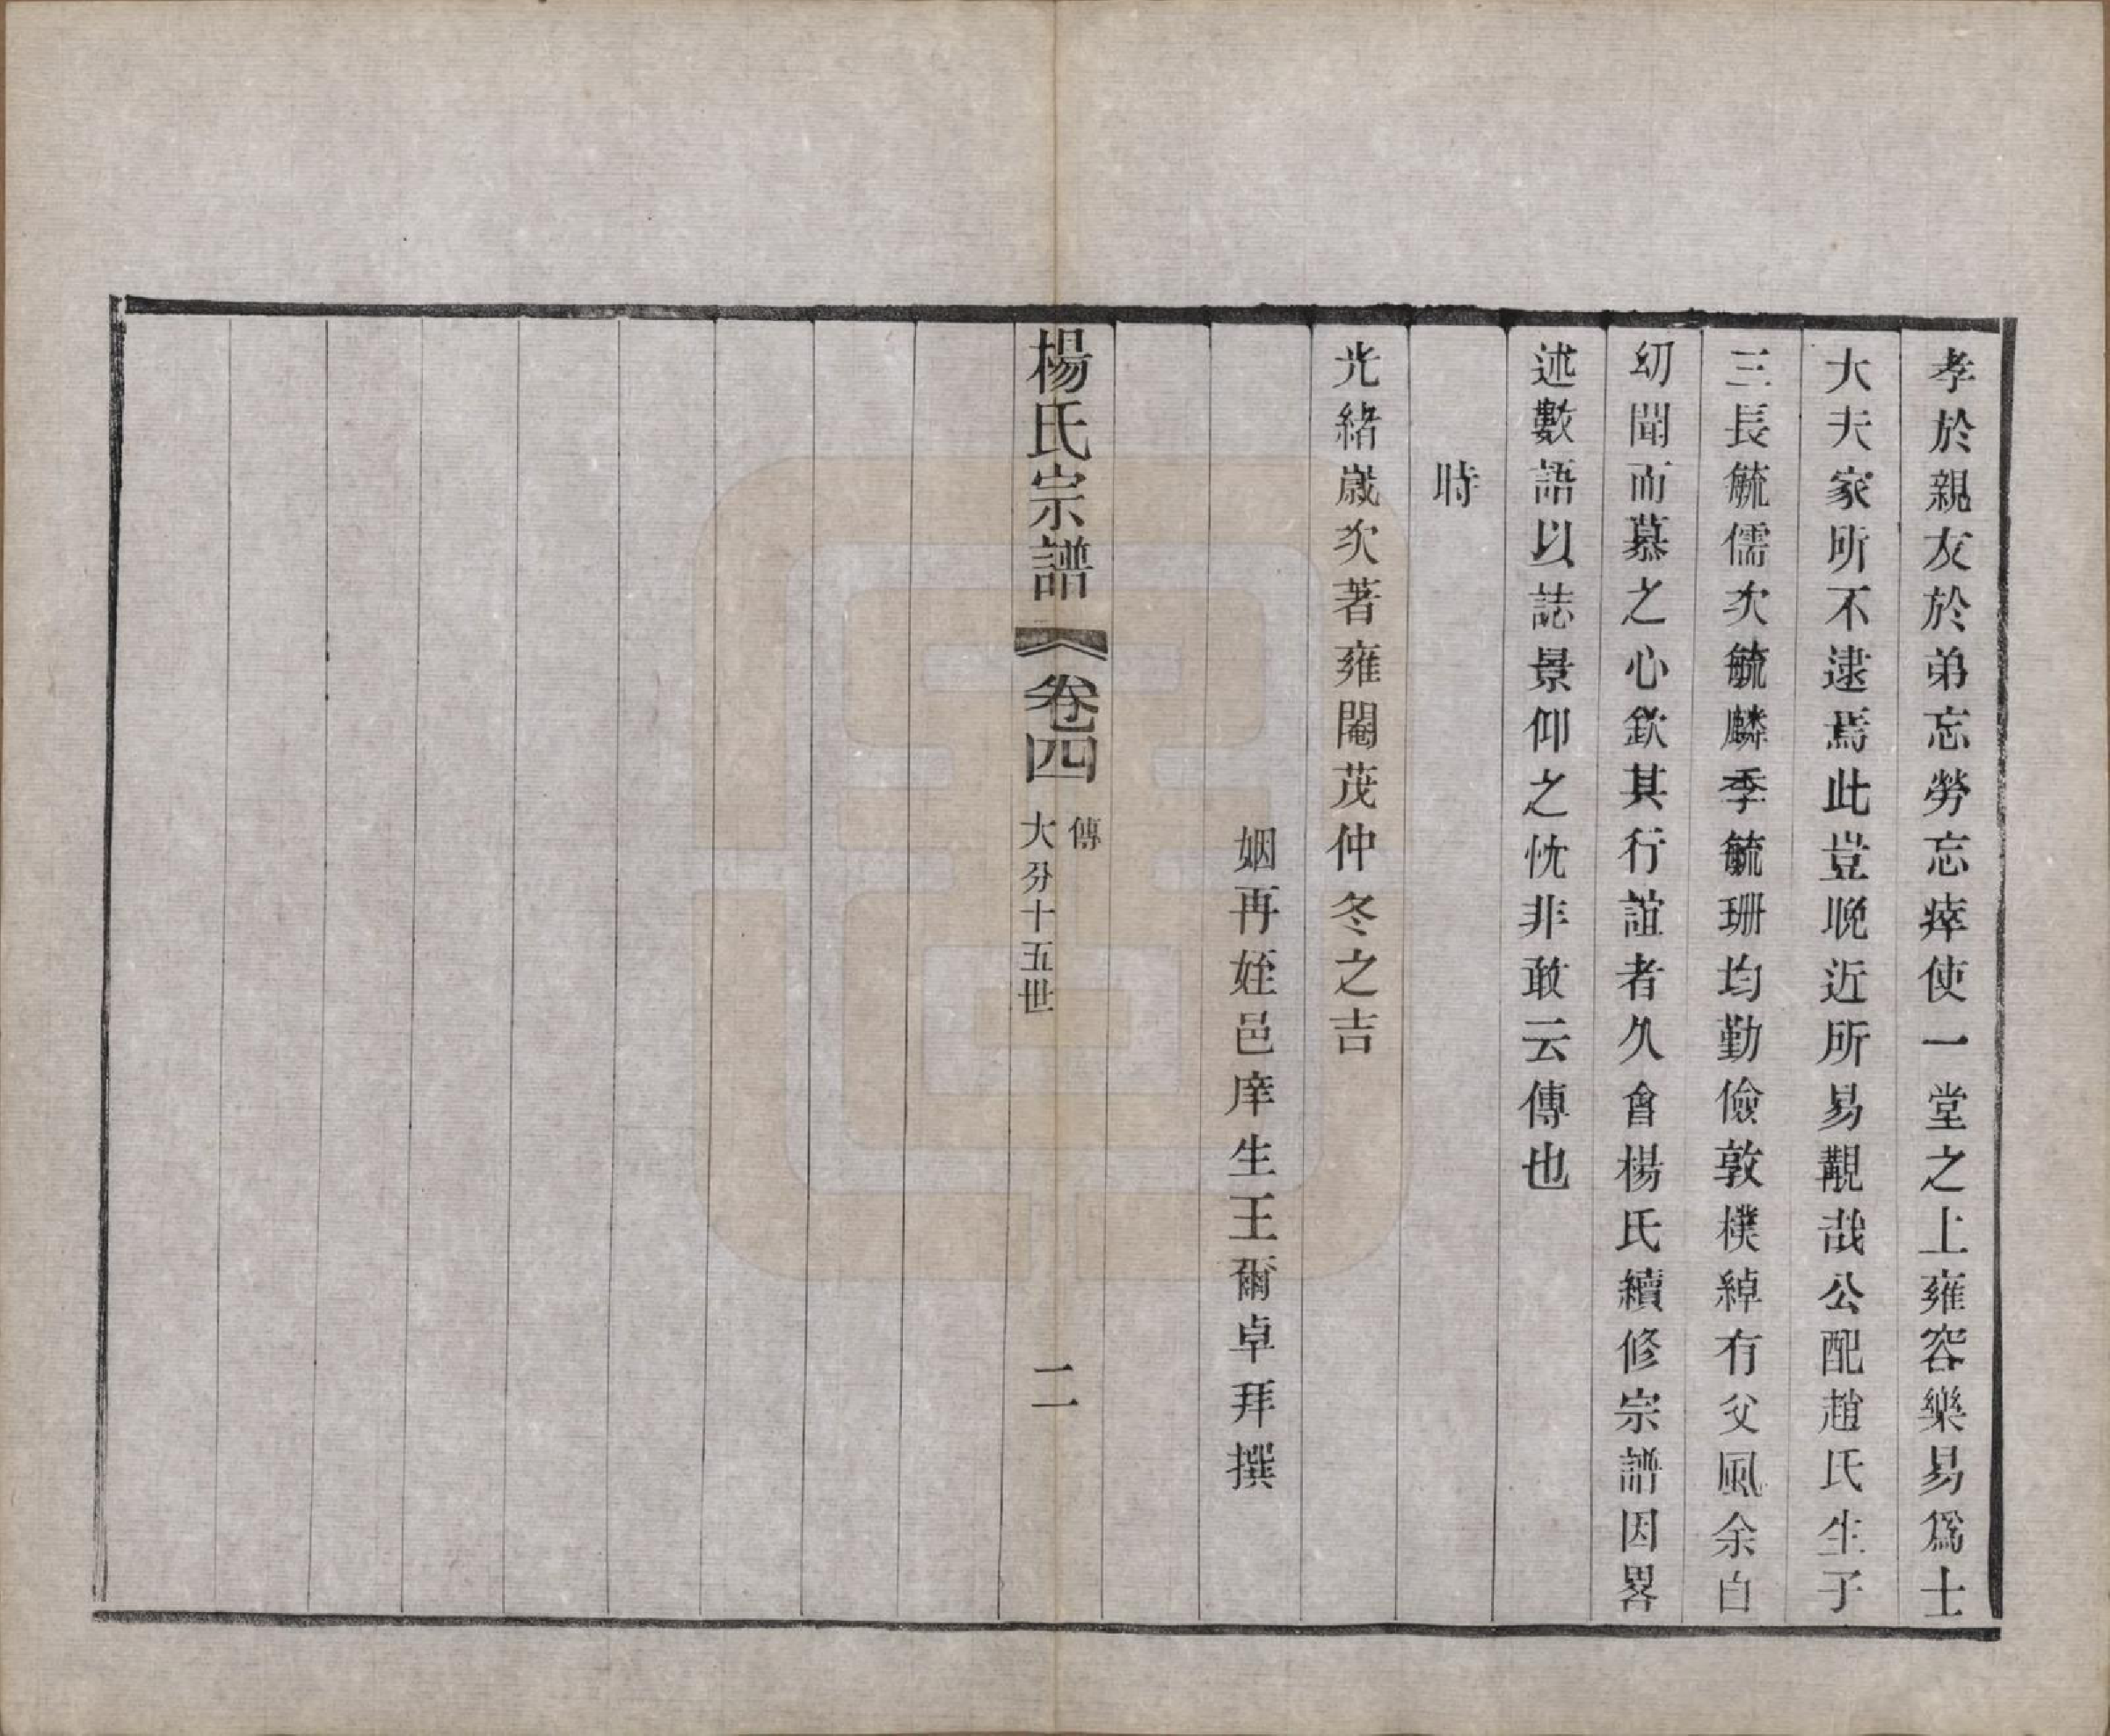 孝於親友於弟忘勞忘瘁使一堂之上雍容樂易爲士
大夫家所不逮焉此豈晚近所易覯哉公配趙氏生子
三長毓儒次毓麟季毓珊均勤儉敦樸綽有父風余自
幼聞而慕之心欽其行誼者久會楊氏續修宗譜因畧
述數語以誌景仰之忱非敢云傳也
時
光緒歲次著雍閹茂仲冬之吉
姻再姪邑庠生王爾卓拜撰
楊氏宗譜 卷四 傳 大分十五世 二